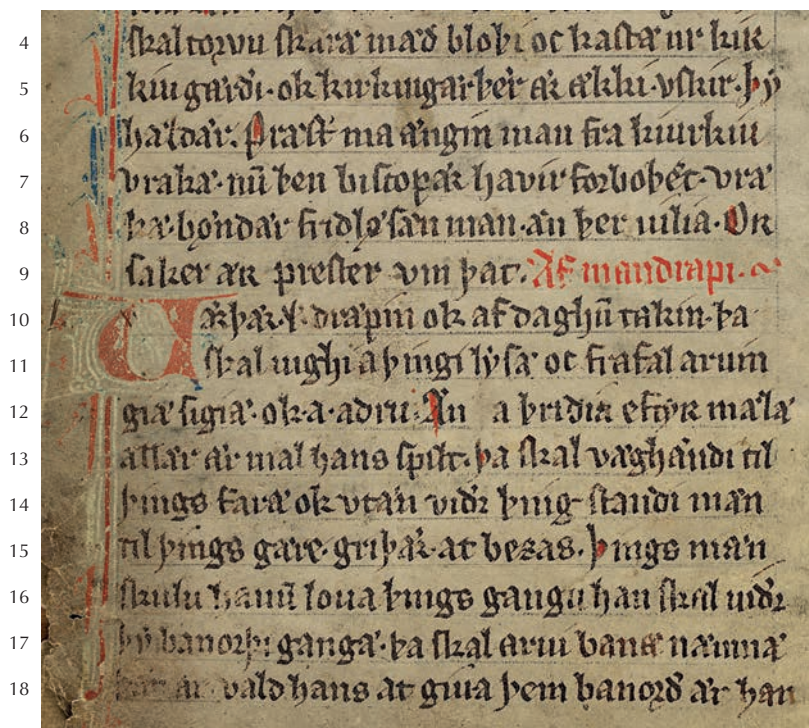 4 skal torvu skæræ mæð bloþi oc kastæ ur kirk
5 kiu gærði· ok kirkiugar þer ær ækki vskir· þy
6 haldær. Præst ma ængin man fra kiurkiu
7 vraka· nu þen biscopær havir forboþet· vra
8 kæ· bøndær friðløsæn man· æn þer uilia· Ok
9 saker ær prester vm þat. Af mandrapi·
10 ærþær· ok af daghum takin· þa
11 skal uighi a þingi lysæ oc frafal aruin
12 giæ sigiæ· ok· a· adru· An a þriðia efтyr mælæ
13 allær ær mal hans spilt· þa skal væghændi til
14 þings faræ ok vtæn viðr þing standi· mæn
15 til þings gære· griþær· at beþas· þings mæn
16 skulu hanum loua þings gangu han skal uiðr
17 þy banorþi gangæ· þa skal arui banæ næmnæ
18 ær vald hans at giua þem banorð ær han